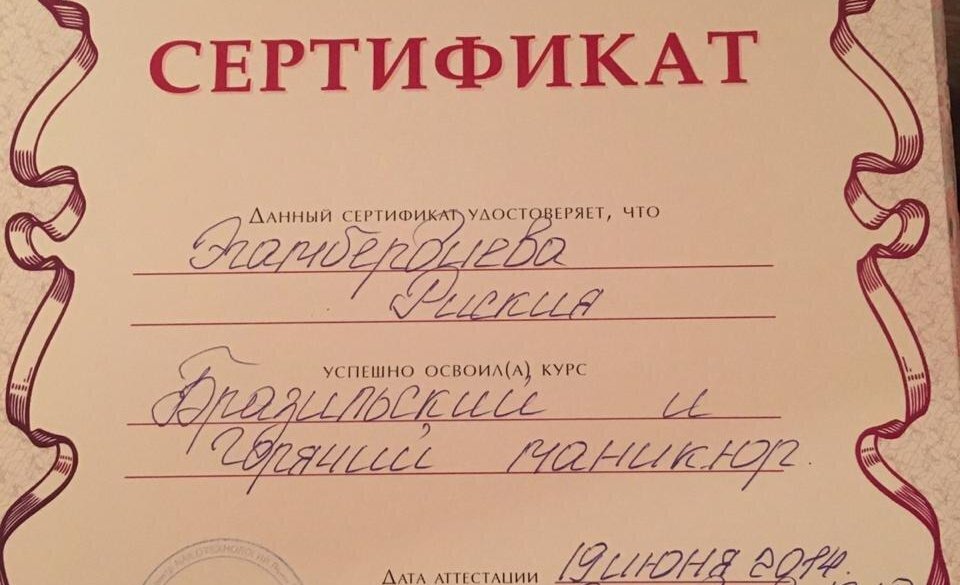 СЕРТИФИКАТ
Данный сертификат удостоверяет, что
Эгамбердиева
Риския
успешно освоил(а) курс
Бразильский и
горячий маникюр.
Дата аттестации 19 июня 2014.